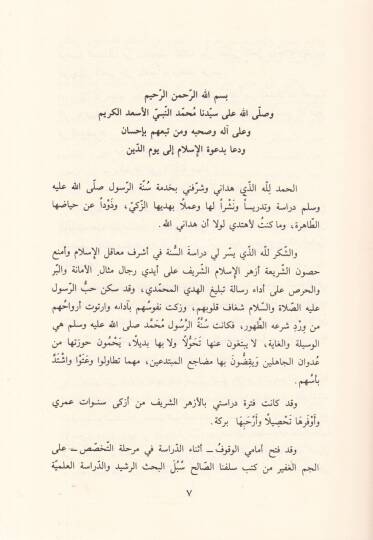 بسم الله الرّحمن الرّحيم
وصلّى الله على سيّدنا مُحمّد النّبيّ الأسعد الكريم
وعلى آله وصحبه ومن تبعهم بإحسان
ودعا بدعوة الإسلام إلى يوم الدّين
الحمد لِلّه الذّي هداني وشرّفني بخدمة سُنّة الرّسول صلّى الله عليه
وسلم دراسة وتدريساً ونَشْراً لها وعملًا بهديها الزّكيّ، وذَوْداً عن حياضها
الطّاهرة، وما كنتُ لأهتدي لولا أن هداني الله.
والشّكر لِلّه الّذي يسّر لي دراسةَ السُّنة في أشرف معاقل الإسلام وأمنع
حصون الشّريعة أزهرِ الإسلام الشّريف على أيدي رجال مثال الأمانة والبّر
والحرص على أداء رسالة تبليغ الهدي المحمّدي، وقد سكن حبُّ الرّسول
عليه الصّلاة والسَّلام شغاف قلوبهم، وزكت نفوسُهم بآدابه وارتوت أرواحُهم
من وِرْدِ شرعه الطّهور، فكانت سُنّةُ الرَّسُول مُحَمَّد صلى الله عليه وسلم هي
الوسيلة والغاية، لا يبتغون عنها تَحَوُّلًا ولا بها بديلًا، يَحْمُون حوزتها من
عُدوان الجاهلين وَيقِضُّون بها مضاجع المبتدعين، مهما تطاولوا وعَتَوْا واشْتَدّ
بأسُهم.
وقد كانت فترة دراستي بالأزهر الشّريف من أزكى سنوات عمري
وأوْفَرِها تَحْصِيلًا وأرْحَبِهَا بركة.
وقد فتح أمامي الوقوفُ ــ أثناء الدّراسة في مرحلة التّخصّص ــ على
الجم الغفير من كتب سلفنا الصّالح سُبُلَ البحث الرشيد والدّراسة العلميّة
٧